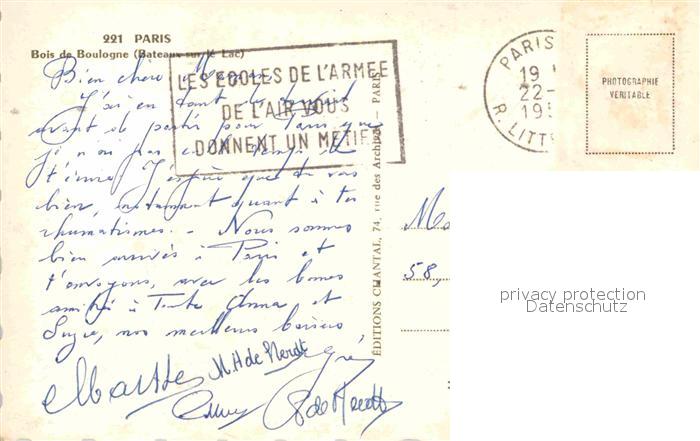 221 PARIS
Bois de Boulogne (Bateaux sur le Lac)
Bien chère
LES ECOLES DE L'ARMEE
DE L'AIR VOUS
DONNENT UN METIER
PARIS
19
22-
195
R. LITT
PHOTOGRAPHIE
VERITABLE
J'ai eu tant de
avant de partir pour Paris que
je n'ai pas eu le temps de
t'écrire. J'espère que tu vas
bien, notamment quant à tes
rhumatismes. - Nous sommes
bien arrivés à Paris et
t'envoyons, avec les bonnes
amitiés à Tante Anna et
Suzie, nos meilleurs baisers
Marthe M.H de
ÉDITIONS CHANTAL, 74, rue des Archives - PARIS
58,
privacy protection
Datenschutz